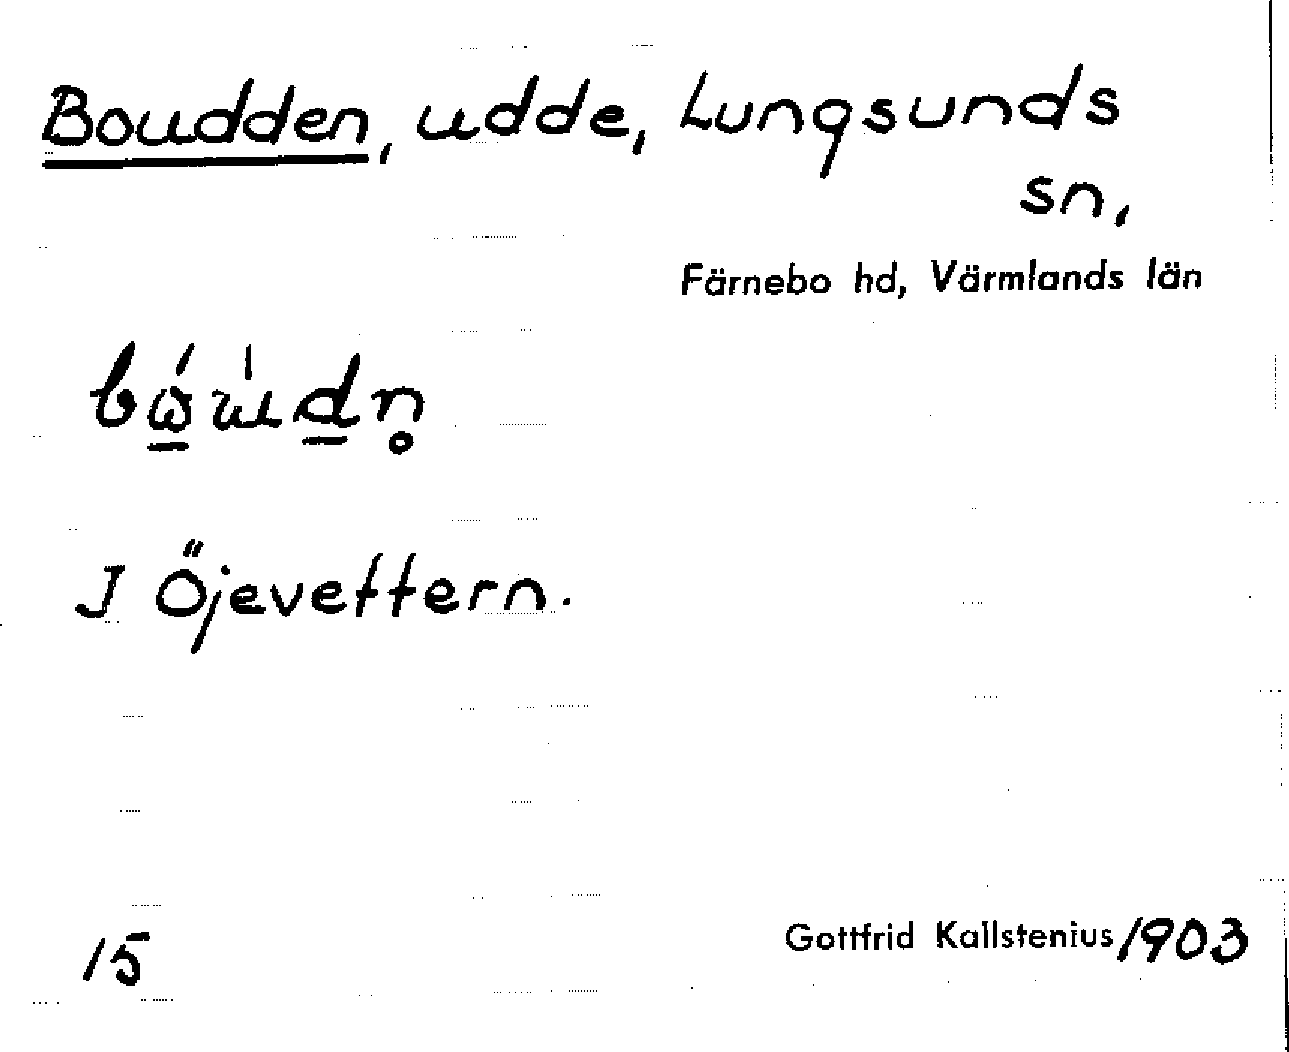 Boudden, udde, Lungsunds
sn,
Färnebo hd, Värmlands län
I Öjevettern.
15
Gottfrid Kallstenius 1903